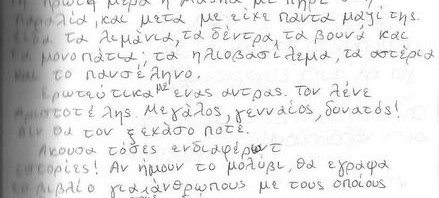 πρώτη μέρα η με πήρε
παραλία, και μετα με είχε πάντα μαζί της.
Είδα τα λιμάνια, τα δέντρα, τα βουνά και
τα μονοπάτια; τα ηλιοβασίλεμα, τα αστέρια
και το πανσέληνο.
Ερωτεύτικα με ενας αντρας. Τον λένε
Αριστοτέλης. Μεγάλος, γενναίος, δυνατός!
Δεν θα τον ξεκάσο ποτέ.
Ακουσα τόσες ενδιαφέρωτ
ιστορίες! Αν ήμουν το μολύβι, θα εγραφα
το βιβλίο για ανθρώπους με τους οποίους